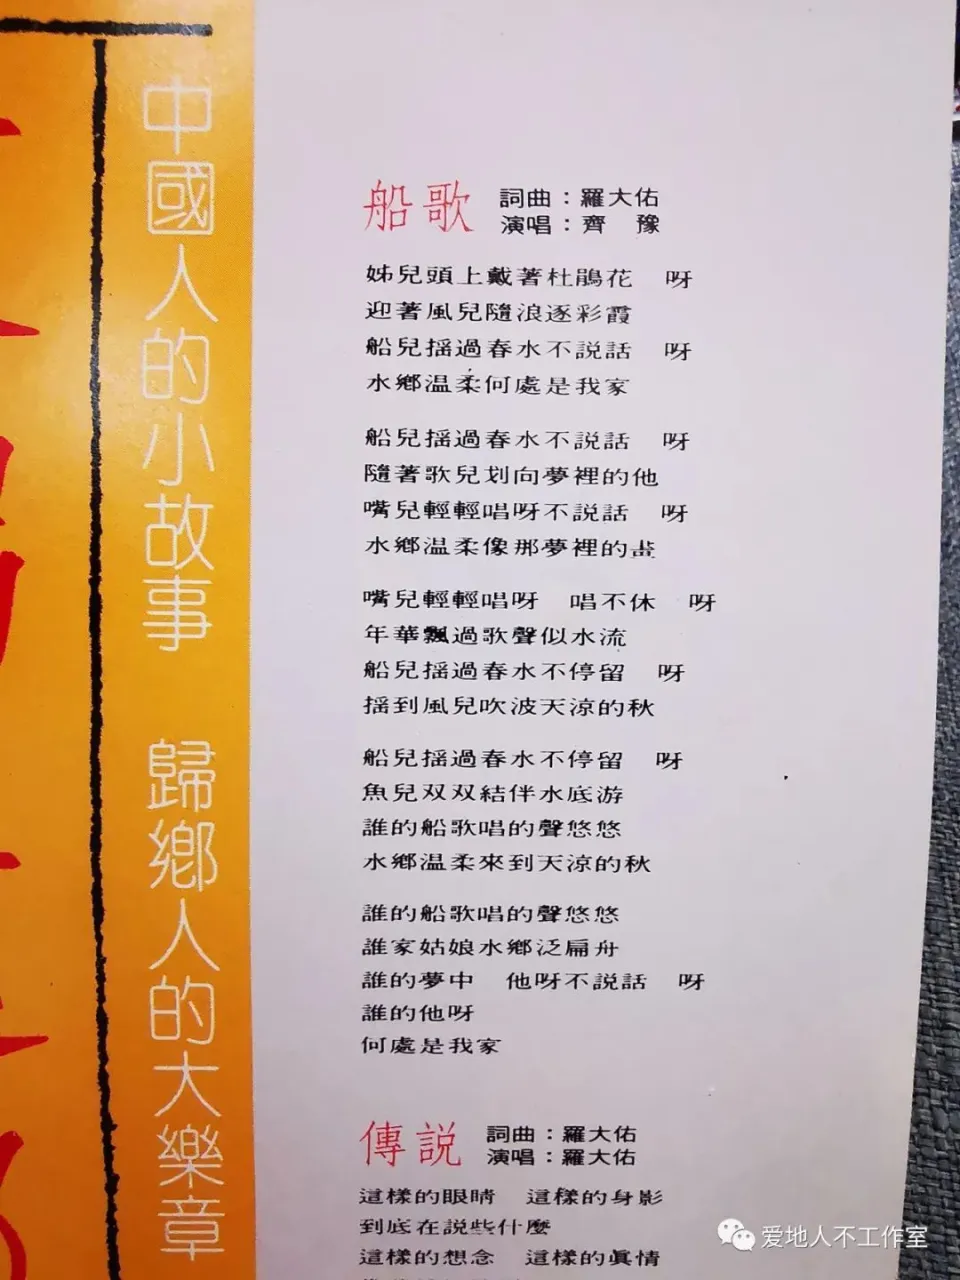 中國人的小故事　歸鄉人的大樂章
船歌　詞曲：羅大佑
演唱：齊　豫
姊兒頭上戴著杜鵑花　呀
迎著風兒隨浪逐彩霞
船兒搖過春水不説話　呀
水鄉温柔何處是我家
船兒搖過春水不説話　呀
隨著歌兒划向夢裡的他
嘴兒輕輕唱呀不説話　呀
水鄉温柔像那夢裡的畫
嘴兒輕輕唱呀　唱不休　呀
年華飄過歌聲似水流
船兒搖過春水不停留　呀
搖到風兒吹波天涼的秋
船兒搖過春水不停留　呀
魚兒双双結伴水底游
誰的船歌唱的聲悠悠
水鄉温柔來到天涼的秋
誰的船歌唱的聲悠悠
誰家姑娘水鄉泛扁舟
誰的夢中　他呀不説話　呀
誰的他呀
何處是我家
傳説　詞曲：羅大佑
演唱：羅大佑
這樣的眼睛　這樣的身影
到底在説些什麼
這樣的想念　這樣的眞情
爱地人不工作室